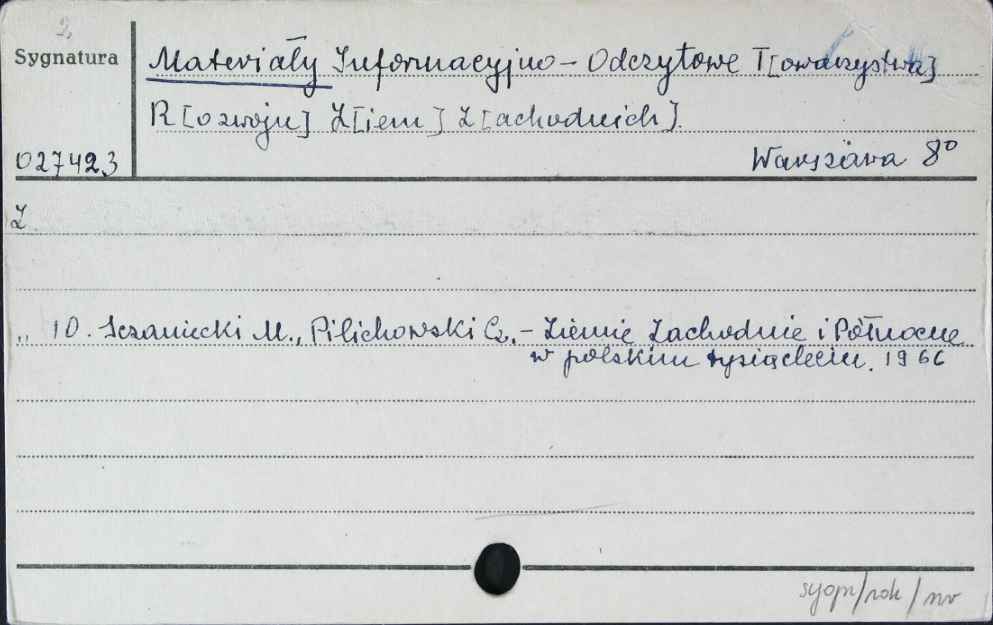 2.
Sygnatura
Materiały Informacyjno – Odczytowe T[owarzystwa]
R[ozwoju] Z[iem] Z[achodnich].
027423
Warszawa 8°
Z
„ 10. Sczaniecki M., Pilichowski Cz. – Ziemie Zachodnie i Północne
w polskim tysiącleciu. 1966
sygn/rok/nr